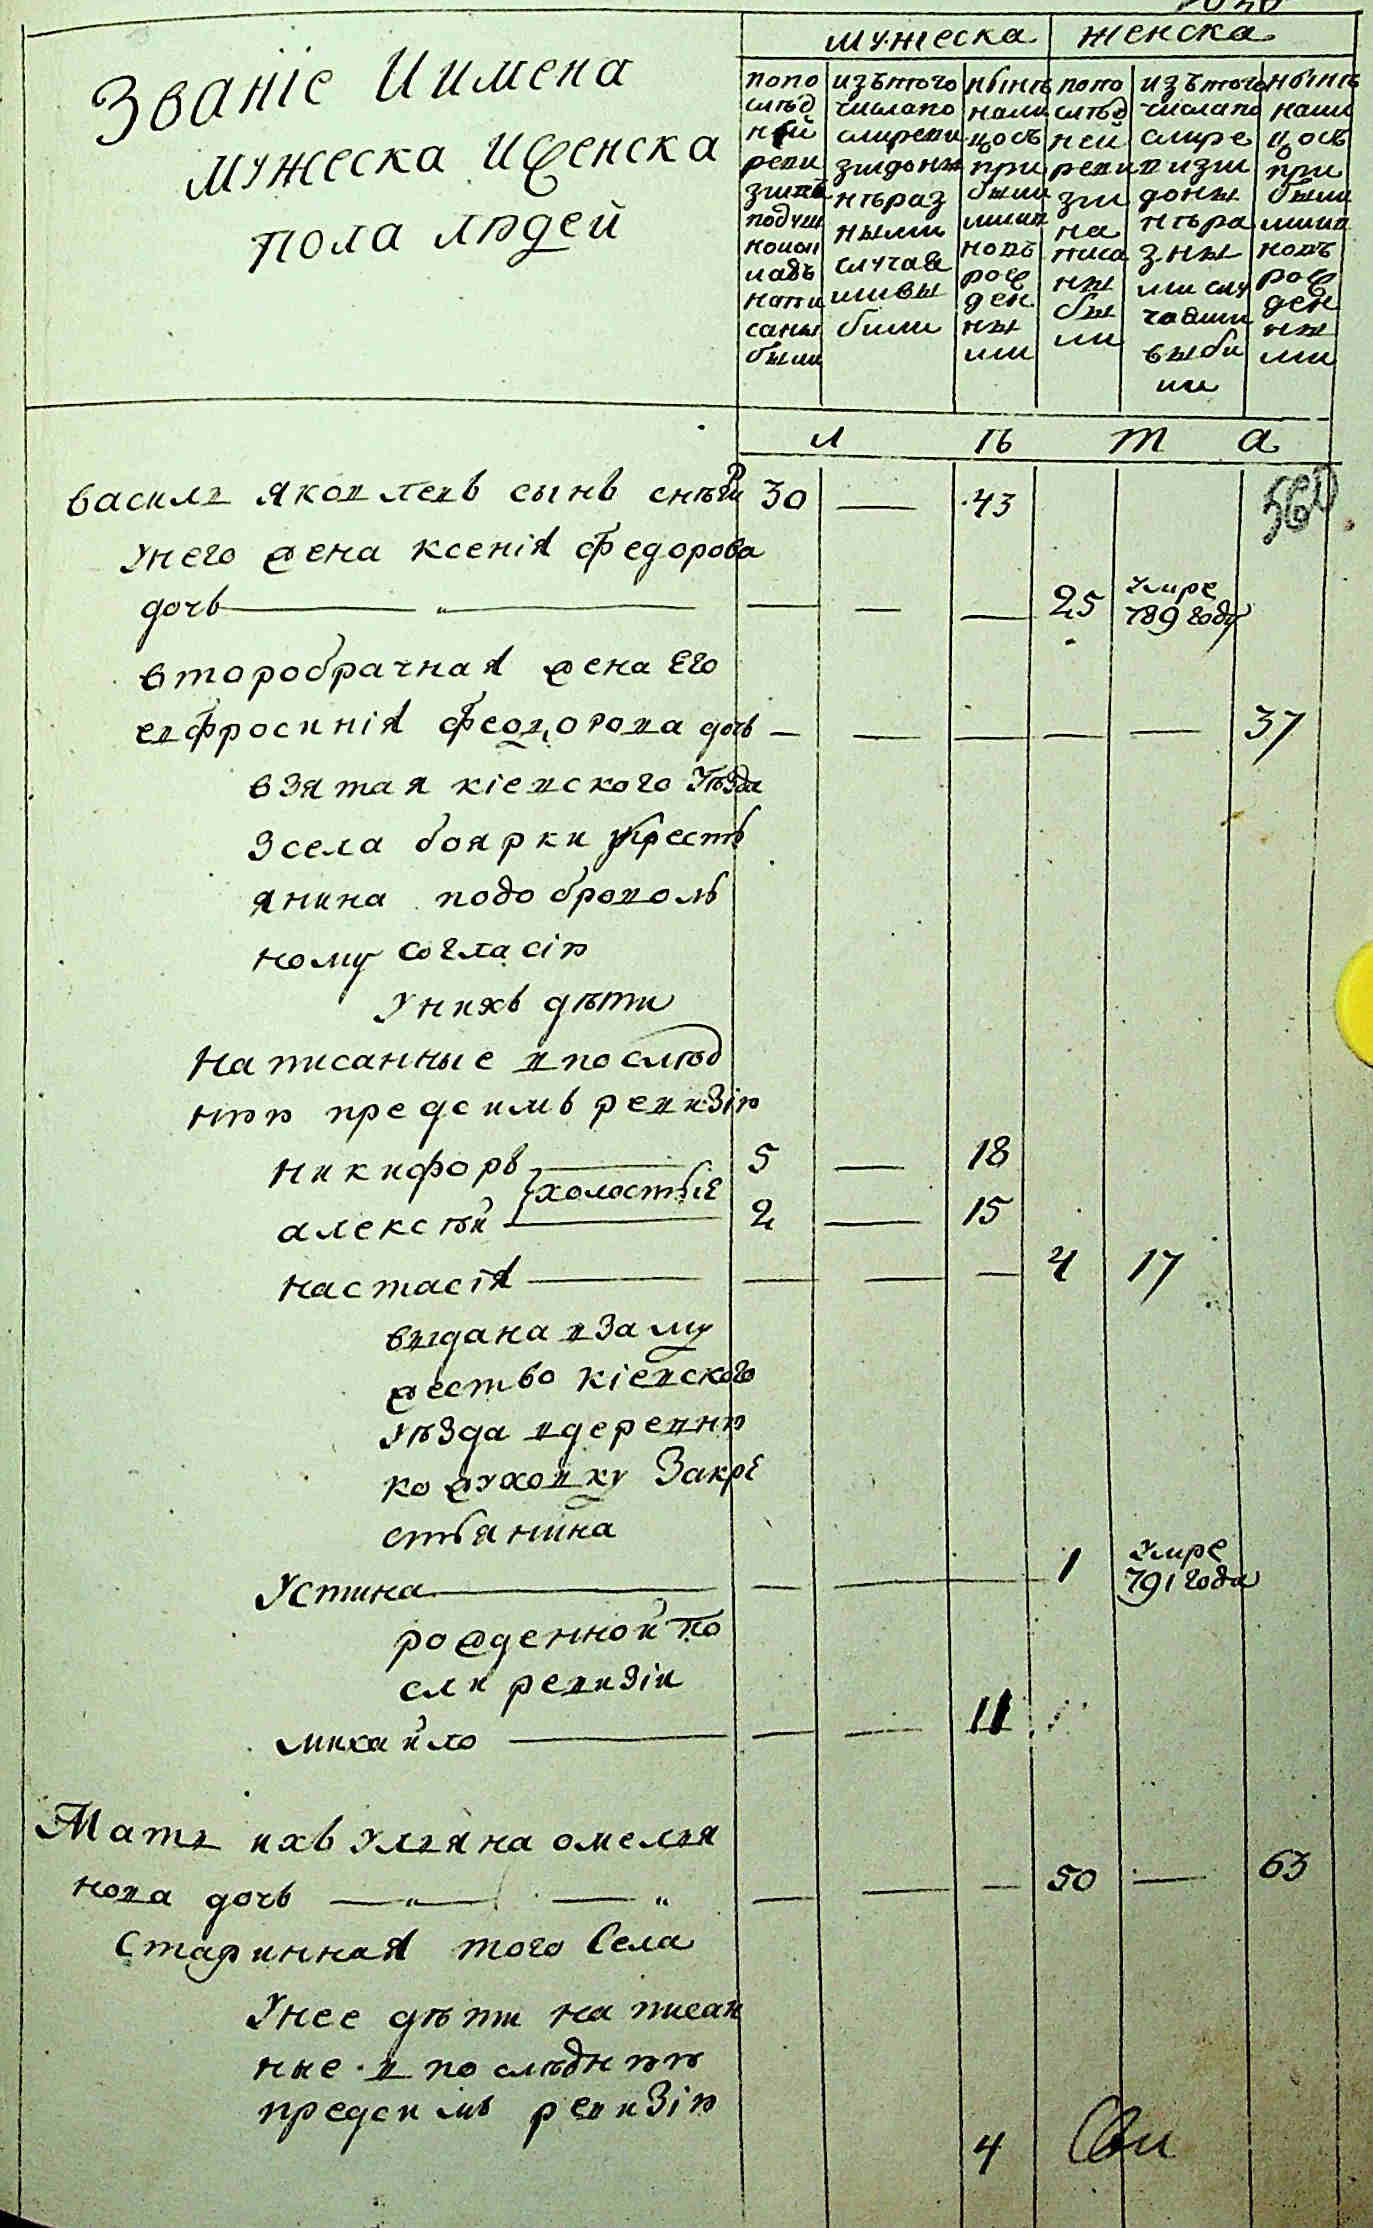 мужеска женска
Званіе И имена
мужеска и женска
пола людей
попо
слѣд
ней
реви
зіи въ
подуш
ной ок
ладъ
напи
саны
были
изътого
числапо
слиреви
зіидоны
нѣраз
ными
случая
мивы
были
нынѣ
нали
цось
при
были
миип
новъ
рож
ден
ны
ми
попо
слѣд
ней
реви
зіи
на
писа
ны
бы
ли
изътого
числапо
слире
визіи
доны
нѣра
зны
мислу
чаями
выбы
ли
нынѣ
нали
цось
при
были
миип
новъ
рож
ден
ны
ми
л ѣ т а
василь яковлевъ сынъ 30 — 43
унего жена ксенія федорова
дочь — — — 25 умре 789 году
второбрачная жена его
евфросинія феодорова дочь — — — — — 37
взятая кіевского уѣзда
зсела боярки укресть
янина подоброволь
ному согласію
унихъ дѣти
написанные впослѣд
нюю предсимъ ревизію
никифоръ 5 — 18
холостые
алексѣй 2 — 15
настасія — — — 4 17
выдана взаму
жество кіевского
уѣзда вдеревню
кожуховку Закре
стьянина
Устина — — — 1 умре 791 года
рожденной по
сли ревизіи
михайло — — 11
Мать ихъ ульяна омелья
нова дочь — — — 50 — 63
Старинная того Села
Унее дѣти написан
ные в послѣднюю
предсимъ ревизію
4